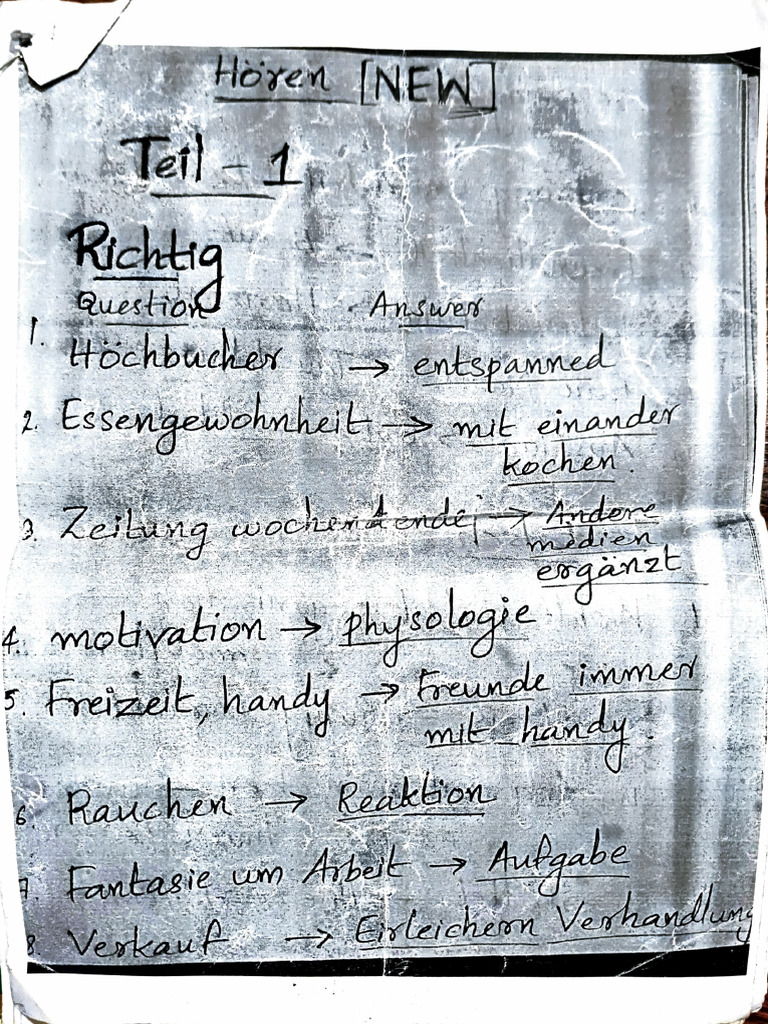 Hören [NEW]
Teil - 1
Richtig
Question Answer
1. Höchbucher → entspanned
2. Essengewohnheit → mit einander
kochen.
3. Zeitung wochendende → Andere
medien
ergänzt
4. motivation → physologie
5. Freizeit, handy → Freunde immer
mit handy.
6. Rauchen → Reaktion
7. Fantasie um Arbeit → Aufgabe
8 Verkauf → Eirleichern Verhandlung